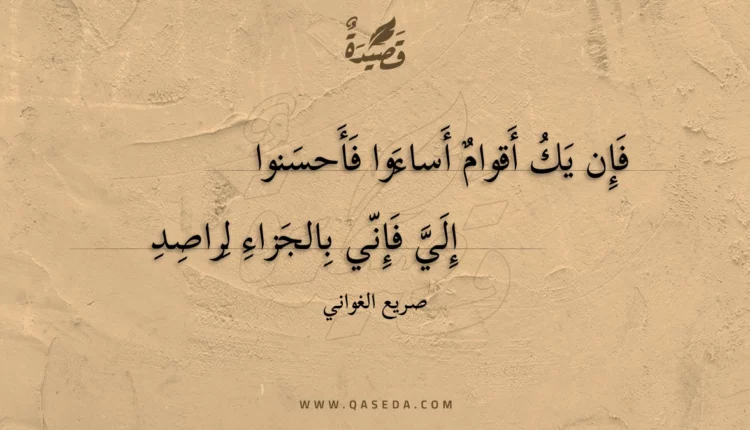 قَصِيدَةٌ
فَإِن يَكُ أَقوامٌ أَساءَوا فَأَحسَنوا
إِلَيَّ فَإِنّي بِالجَزاءِ لِراصِدِ
صريع الغواني
WWW.QASEDA.COM